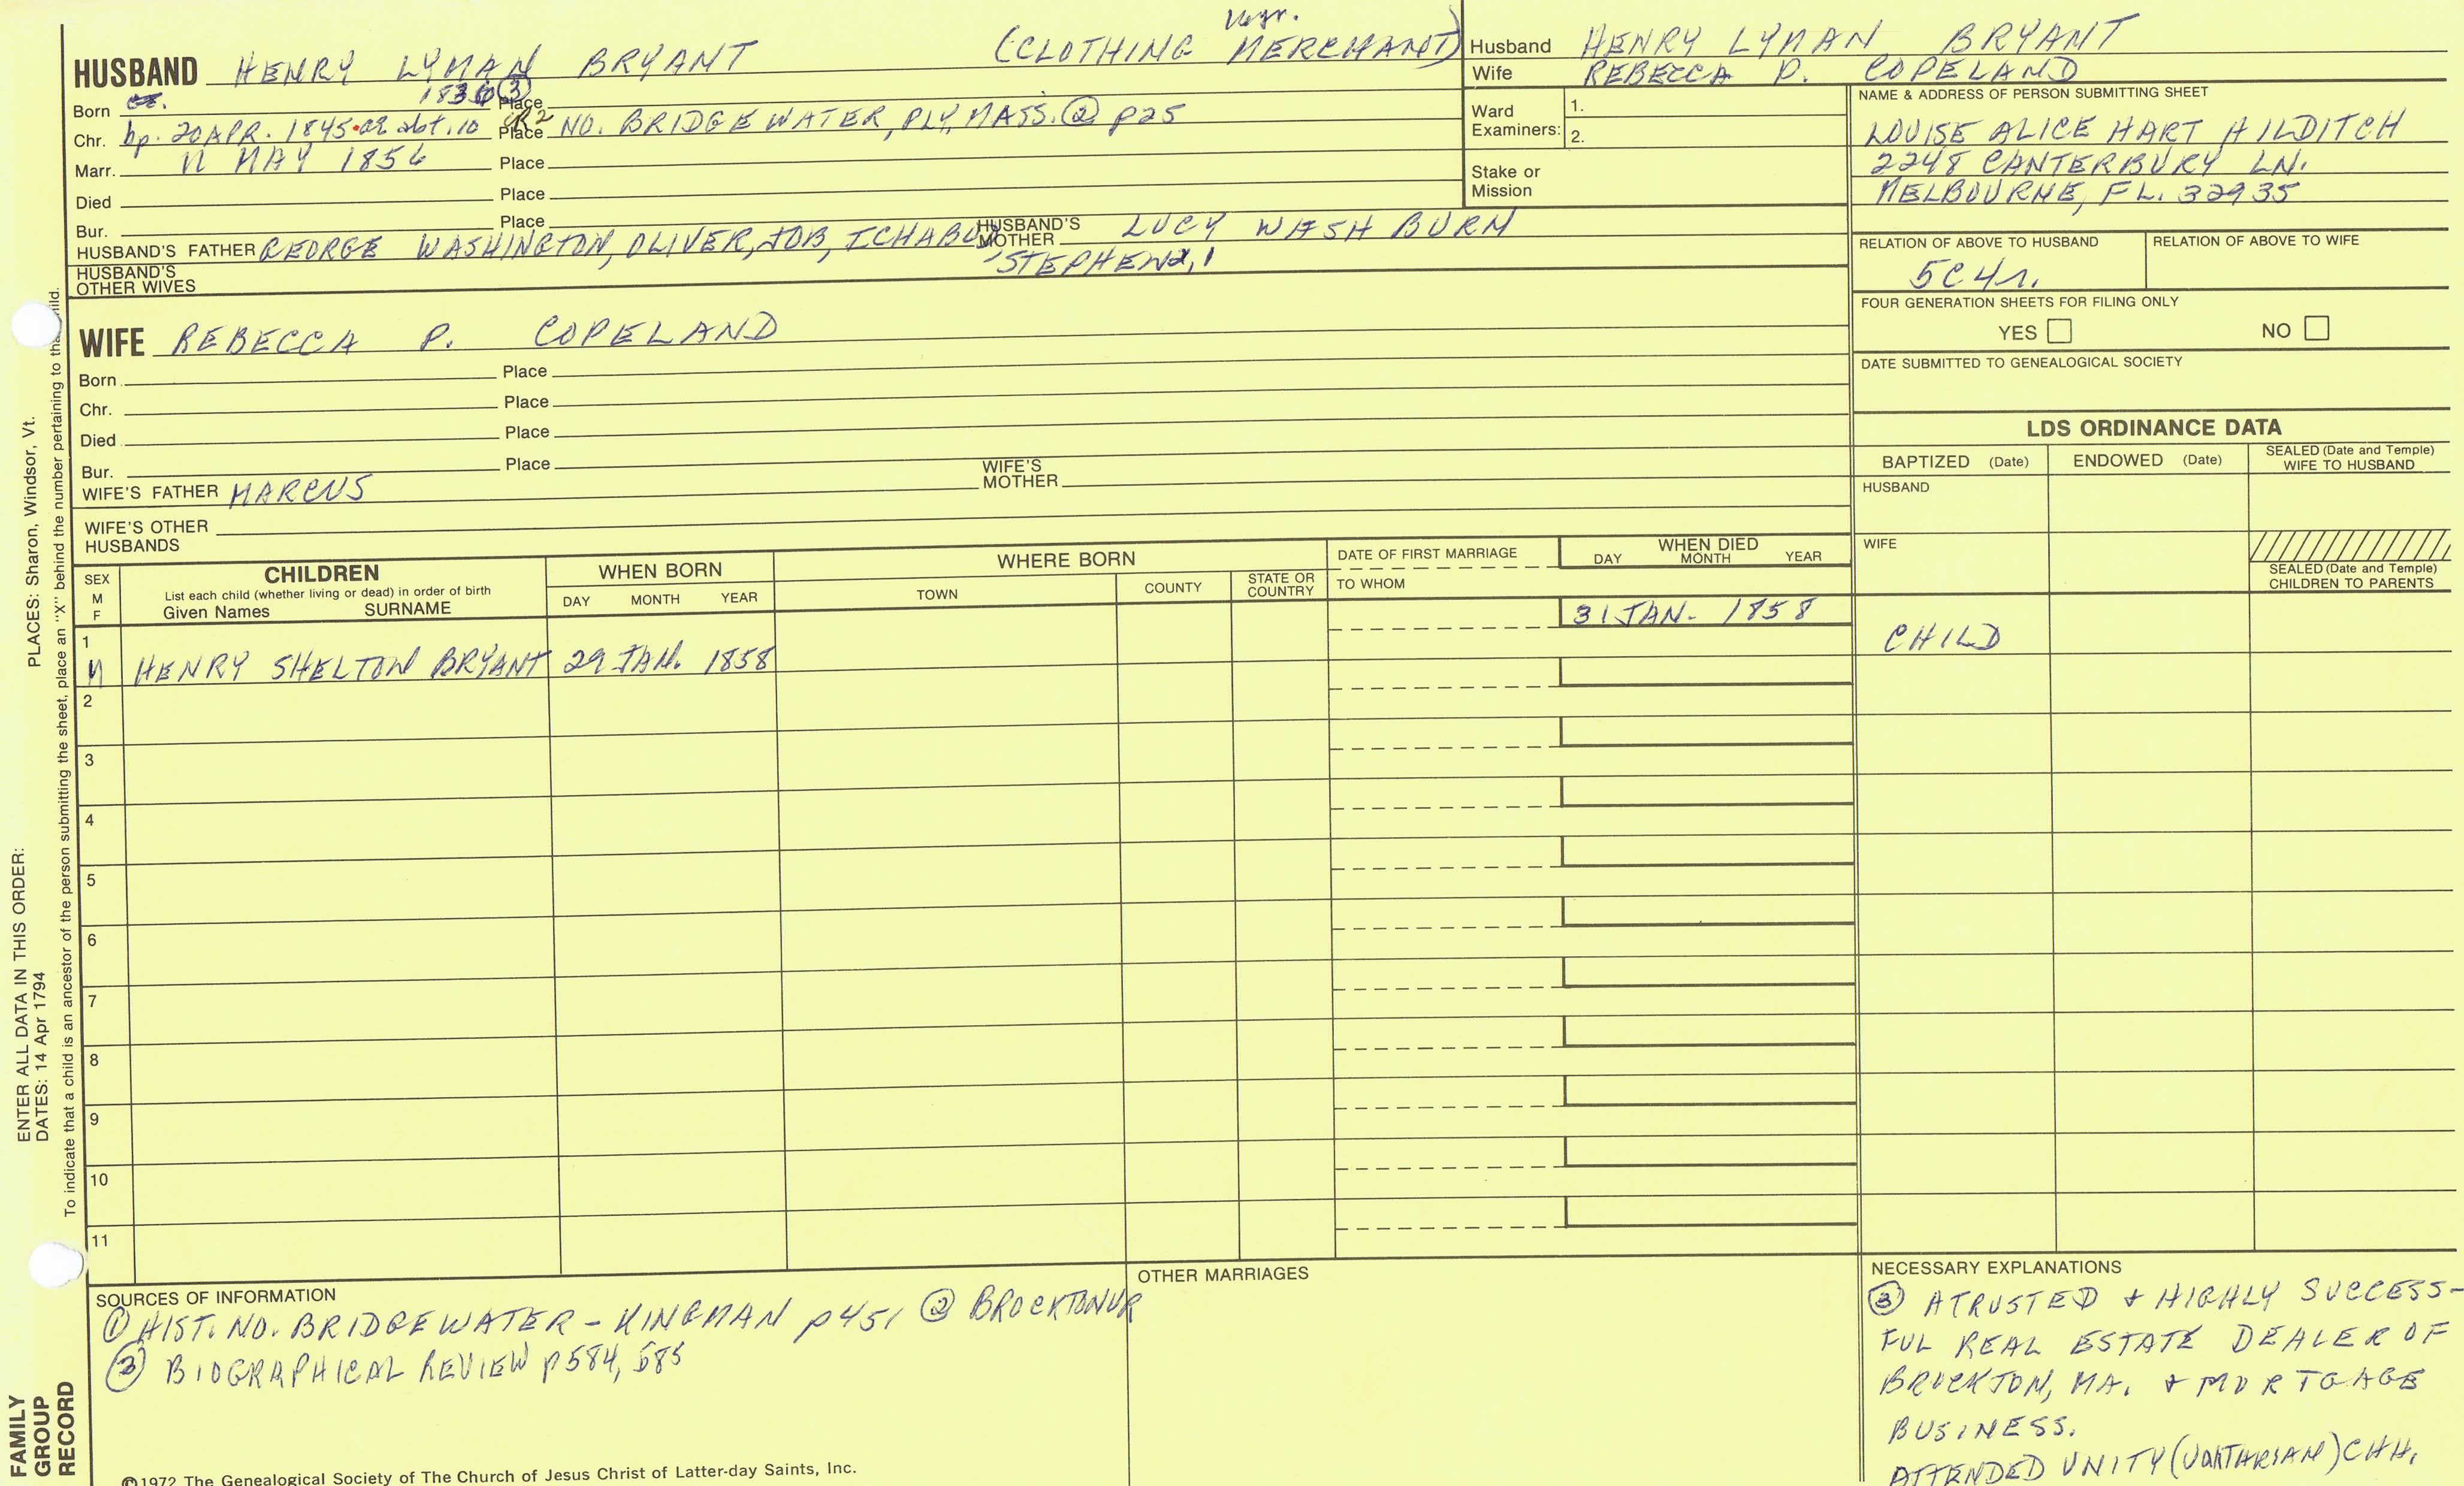 HUSBAND HENRY LYMAN BRYANT (CLOTHING MERCHANT)
Born 1836 ③ Place
Chr. bp. 20 APR. 1845 • ae abt. 10 CR2 Place NO. BRIDGEWATER, PLY, MASS. ② p25
Marr. 11 MAY 1856 Place
Died Place
Bur. Place
HUSBAND'S FATHER GEORGE WASHINGTON, OLIVER, JOB, ICHABOD, STEPHEN 2, 1
HUSBAND'S MOTHER LUCY WASHBURN
HUSBAND'S OTHER WIVES
WIFE REBECCA P. COPELAND
Born Place
Chr. Place
Died Place
Bur. Place
WIFE'S FATHER MARCUS
WIFE'S MOTHER
WIFE'S OTHER HUSBANDS
Husband HENRY LYMAN BRYANT
Wife REBECCA P. COPELAND
Ward Examiners: 1.
2.
Stake or Mission
NAME & ADDRESS OF PERSON SUBMITTING SHEET
LOUISE ALICE HART HILDITCH
2248 CANTERBURY LN.
MELBOURNE, FL. 32935
RELATION OF ABOVE TO HUSBAND
5C4r.
RELATION OF ABOVE TO WIFE
FOUR GENERATION SHEETS FOR FILING ONLY
YES NO
DATE SUBMITTED TO GENEALOGICAL SOCIETY
LDS ORDINANCE DATA
BAPTIZED (Date) ENDOWED (Date) SEALED (Date and Temple) WIFE TO HUSBAND
HUSBAND
WIFE
SEALED (Date and Temple) CHILDREN TO PARENTS
SEX M F
CHILDREN
List each child (whether living or dead) in order of birth
Given Names SURNAME
WHEN BORN
DAY MONTH YEAR
WHERE BORN
TOWN COUNTY STATE OR COUNTRY
DATE OF FIRST MARRIAGE
TO WHOM
WHEN DIED
DAY MONTH YEAR
1 M HENRY SHELTON BRYANT 29 JAN. 1858 31 JAN. 1858 CHILD
2
3
4
5
6
7
8
9
10
11
SOURCES OF INFORMATION
① HIST. NO. BRIDGEWATER - KINGMAN p451 ② BROCKTON VR
③ BIOGRAPHICAL REVIEW p584, 585
OTHER MARRIAGES
NECESSARY EXPLANATIONS
③ A TRUSTED + HIGHLY SUCCESS-
FUL REAL ESTATE DEALER OF
BROCKTON, MA. + MORTGAGE
BUSINESS.
ATTENDED UNITY (UNITARIAN) CHH.
©1972 The Genealogical Society of The Church of Jesus Christ of Latter-day Saints, Inc.
FAMILY GROUP RECORD
ENTER ALL DATA IN THIS ORDER:
DATES: 14 Apr 1794
PLACES: Sharon, Windsor, Vt.
To indicate that a child is an ancestor of the person submitting the sheet, place an "X" behind the number pertaining to child.